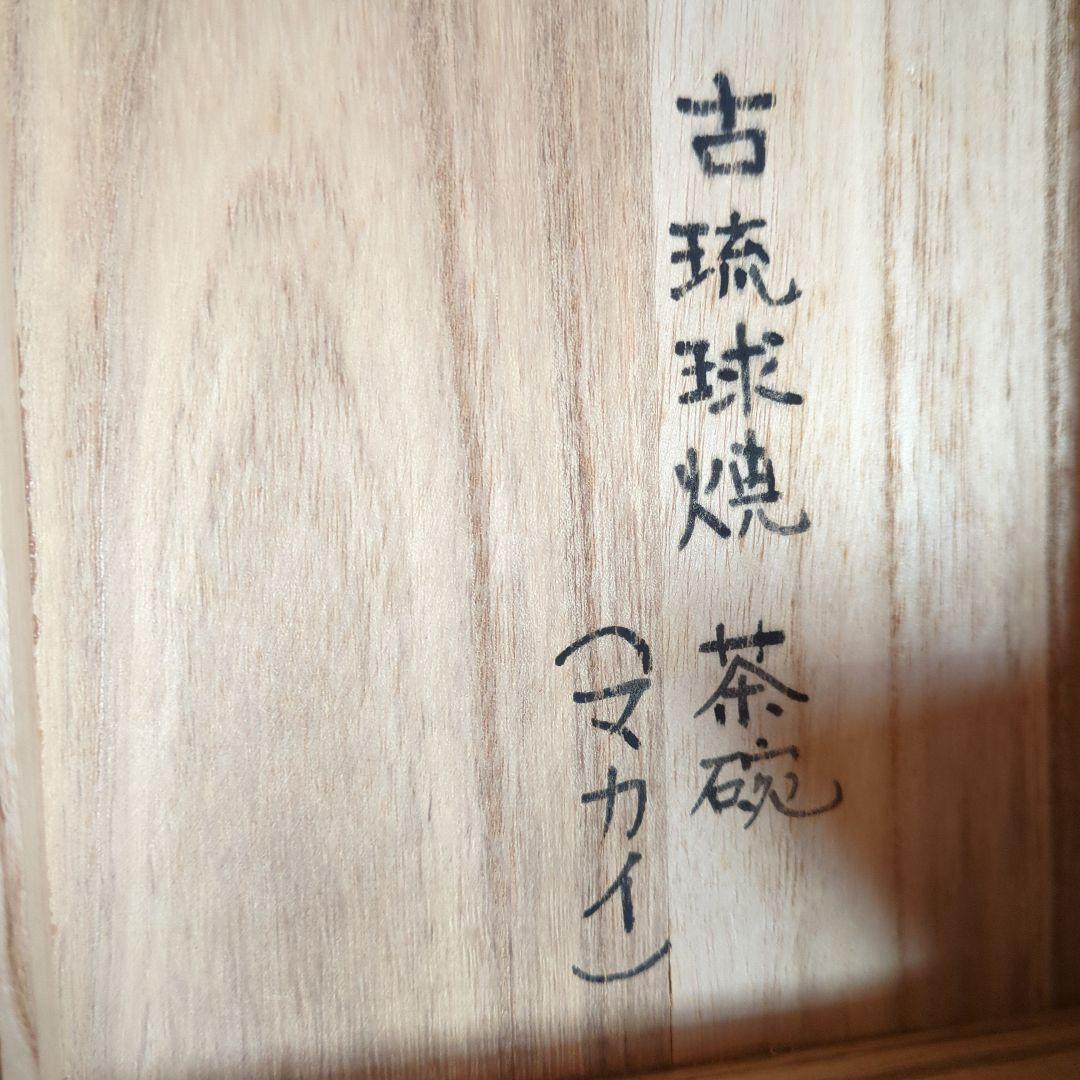 古琉球焼 茶碗
(マカイ)